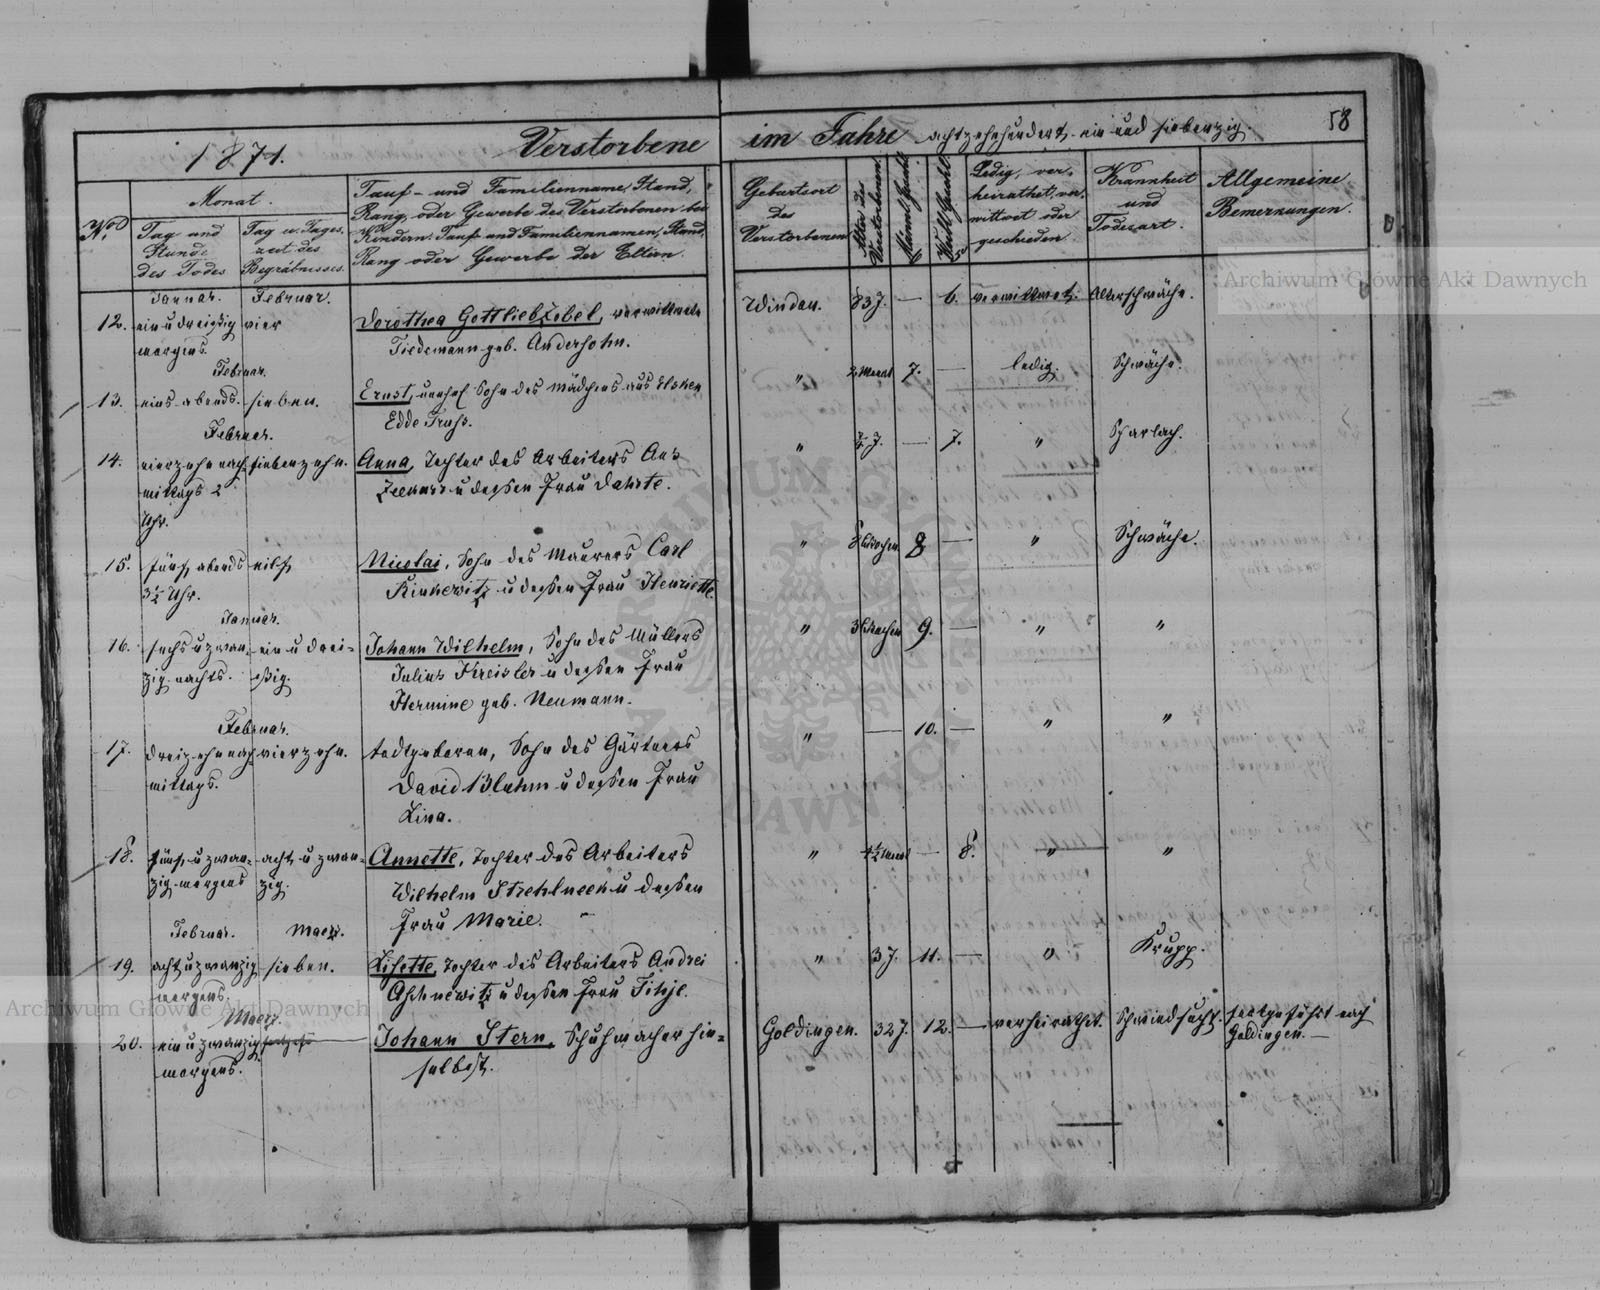 1871.
Verstorbene im Jahre achtzehnhundert ein und siebenzig.
58
No.
Monat.
Tag und
Stunde
des Todes
Tag u. Tages-
zeit des
Begräbnisses.
Tauf- und Familienname, Stand,
Rang oder Gewerbe des Verstorbenen bei
Kindern: Tauf- und Familiennamen, Stand,
Rang oder Gewerbe der Eltern.
Geburtsort
des
Verstorbenen
Alter des
Verstorbenen.
Männl. Geschl.
Weibl. Geschl.
Ledig, ver-
heirathet, ver-
wittwet oder
geschieden.
Krankheit
und
Todesart.
Allgemeine
Bemerkungen.
Januar. Februar.
12. ein u dreißig vier Dorothea Gottlieb Zobel, verwittwete Windau. 83 J. — 6. verwittwet. Altersschwäche.
morgens. Tiedemann geb. Andersohn.
Februar.
13. eins abends. sieben. Ernst, unehel Sohn des Mädchens aus " 2 Monat 7. — ledig. Schwäche.
Edde
Februar.
14. vierzehn nach- siebenzehn. Anna, Tochter des Arbeiters Ans " J. — 7. " Scharlach.
mittags 2 u dessen Frau Dahrte.
Uhr.
15. fünf abends eilf Nicolai, Sohn des Maurers Carl " 8 Wochen 8 — " Schwäche.
3½ Uhr. Kinkewitz u dessen Frau Henriette.
Januar.
16. sechs u zwan- ein u drei- Johann Wilhelm, Sohn des Müllers " 3 Wochen 9. — " "
zig nachts. ßig. Julius Kreisler u dessen Frau
Hermine geb. Neumann.
Februar.
17. dreizehn nach- vierzehn. todtgeboren, Sohn des Gärtners " — 10. — " "
mittags. David Bluhm u dessen Frau
Lina.
18. fünf u zwan- acht u zwan- Annette, Tochter des Arbeiters " 4½ Monat — 8. " "
zig morgens zig. Wilhelm Strehlneek u dessen
Frau Marie.
Februar. Maerz.
19. acht u zwanzig sieben. Lisette, Tochter des Arbeiters Andrei " 3 J. 11. — " Krupp.
morgens. Aschnewitz u dessen Frau
Maerz.
20. ein u zwanzig Johann Stern, Schuhmacher hie- Goldingen. 32 J. 12. — verheirathet. Schwindsucht. fortgeführt nach
morgens. selbst. Goldingen. —
Archiwum Główne Akt Dawnych
Archiwum Główne Akt Dawnych
ARCHIWUM GŁÓWNE AKT DAWNYCH